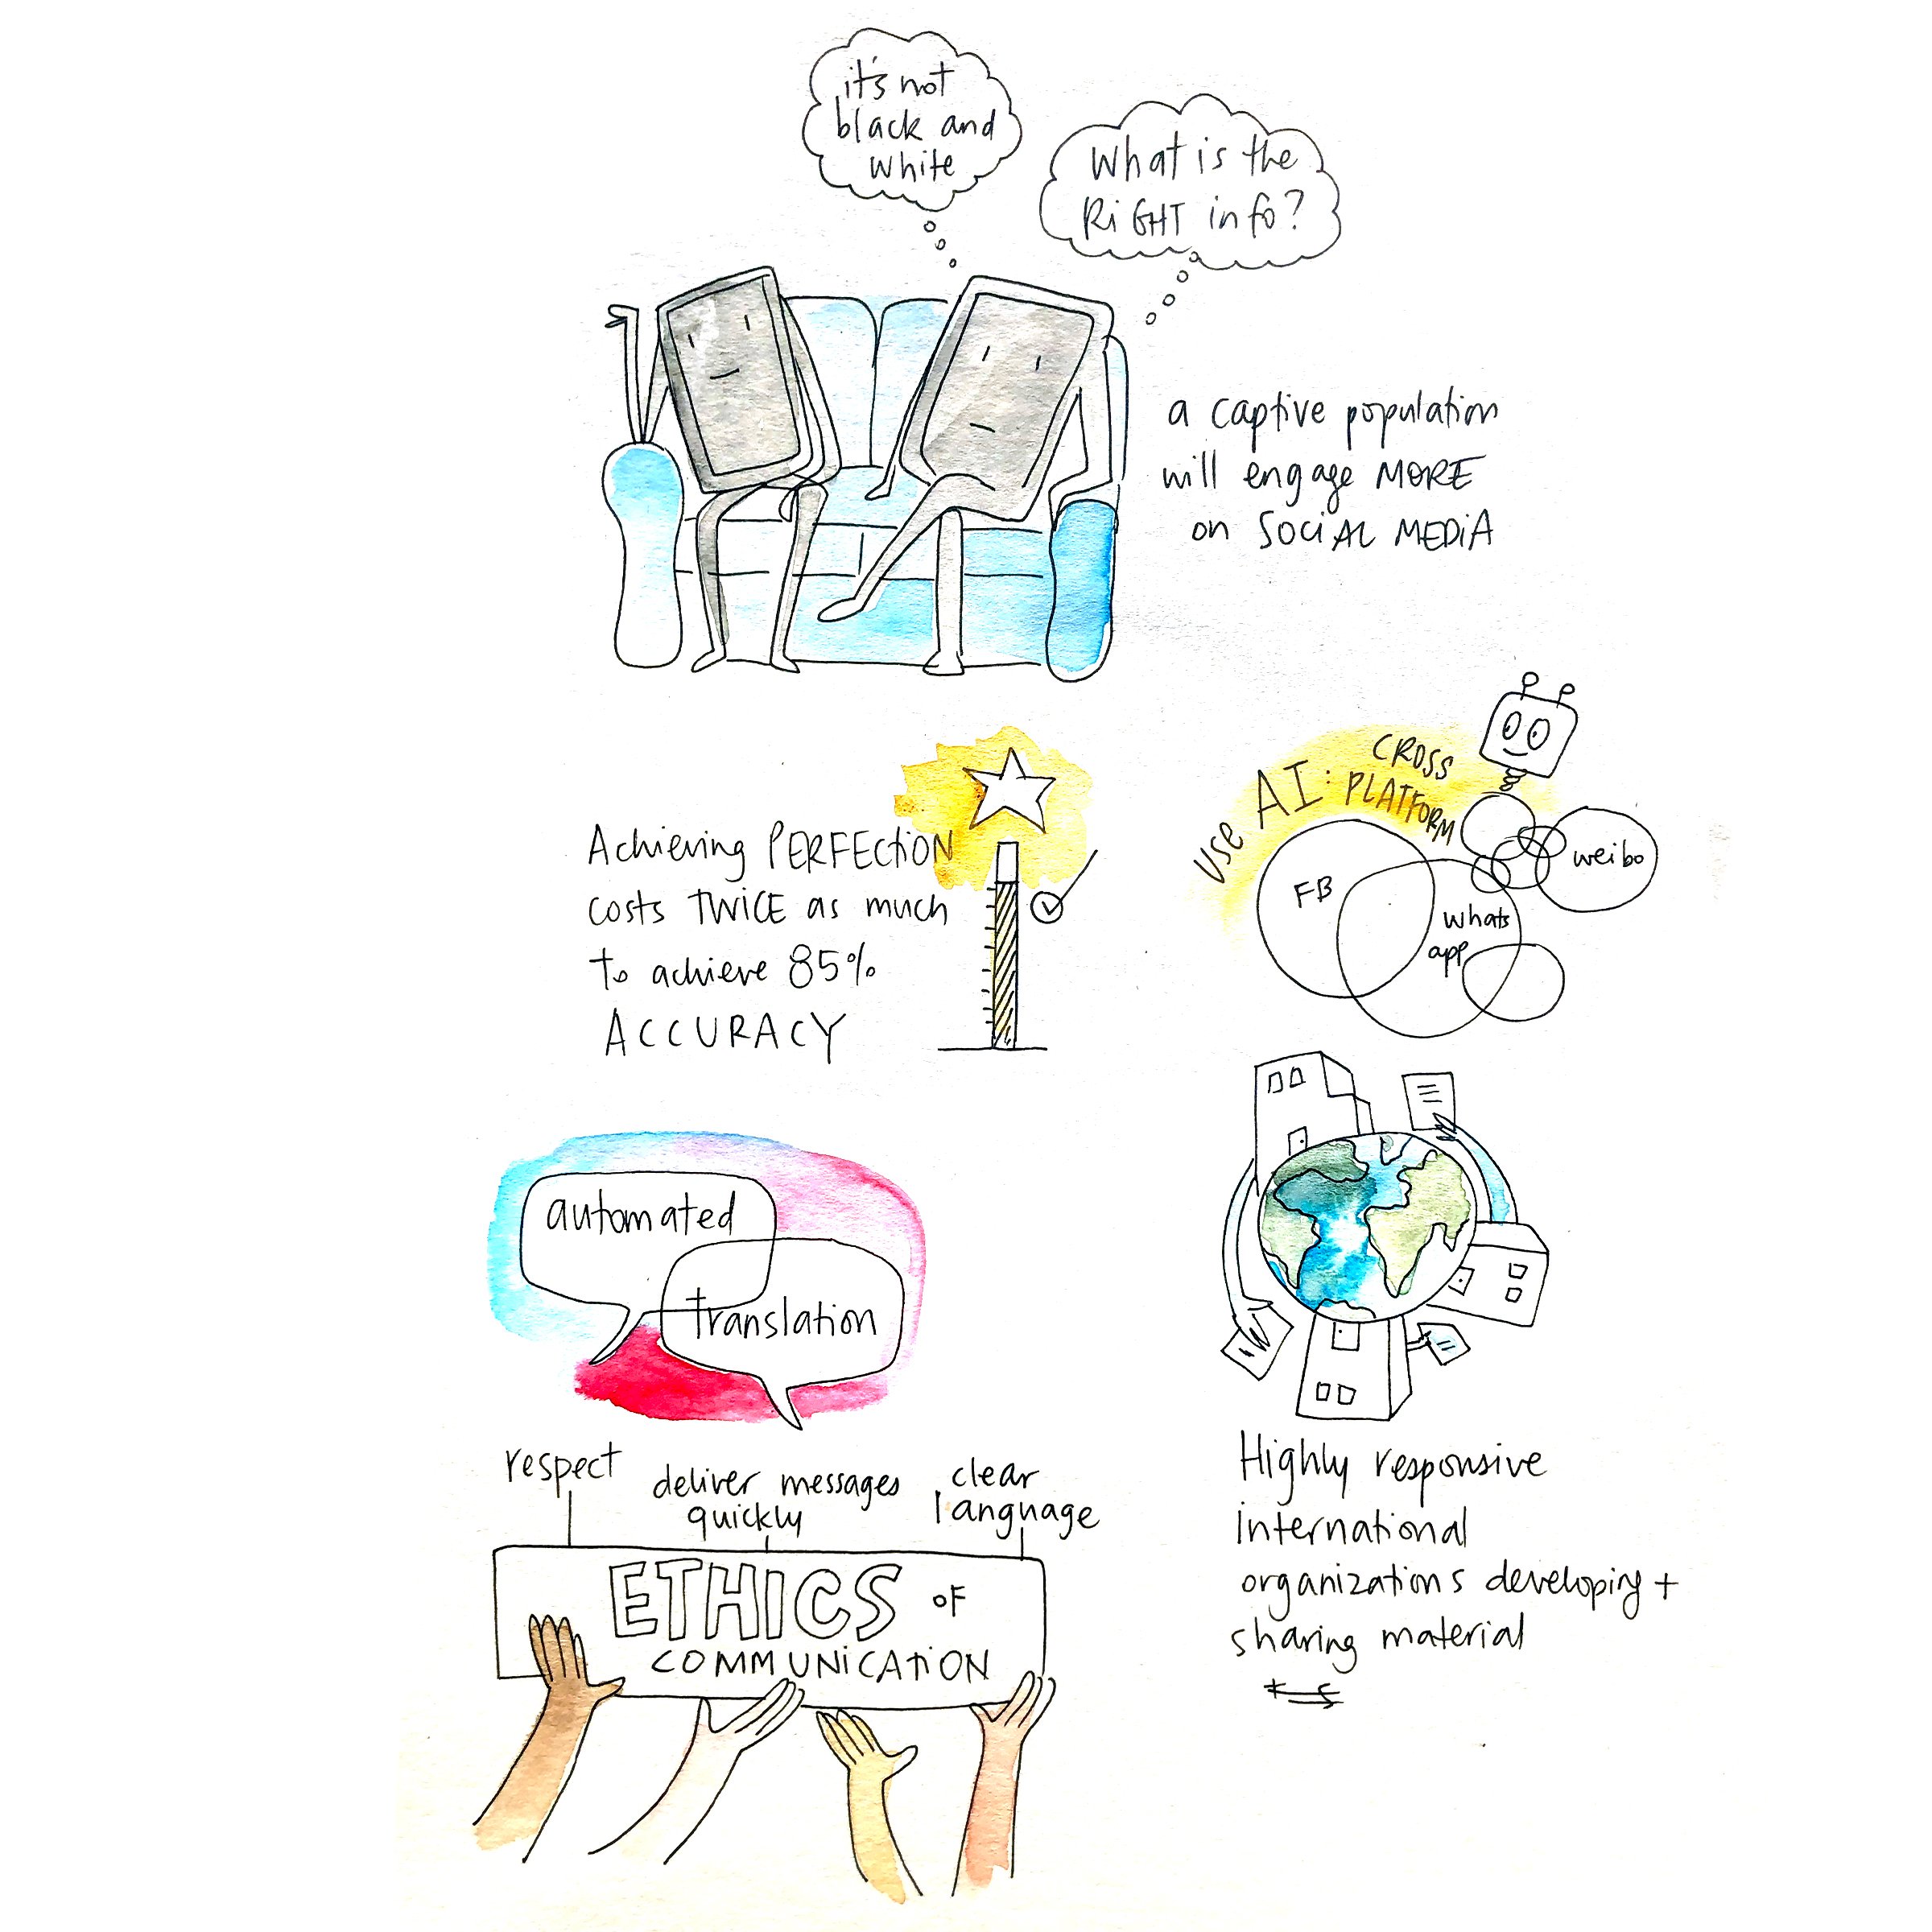 it's not
black and
white
What is the
RiGHT info?
a captive population
will engage MORE
on SOCiAL MEDiA
Achieving PERFECTiON
costs TWICE as much
to achieve 85%
ACCURACY
USE AI: CROSS
PLATFORM
FB
whats
app
weibo
automated
translation
respect
deliver messages
quickly
clear
language
ETHICS OF
COMMUNiCATiON
Highly responsive
international
organizations developing +
sharing material